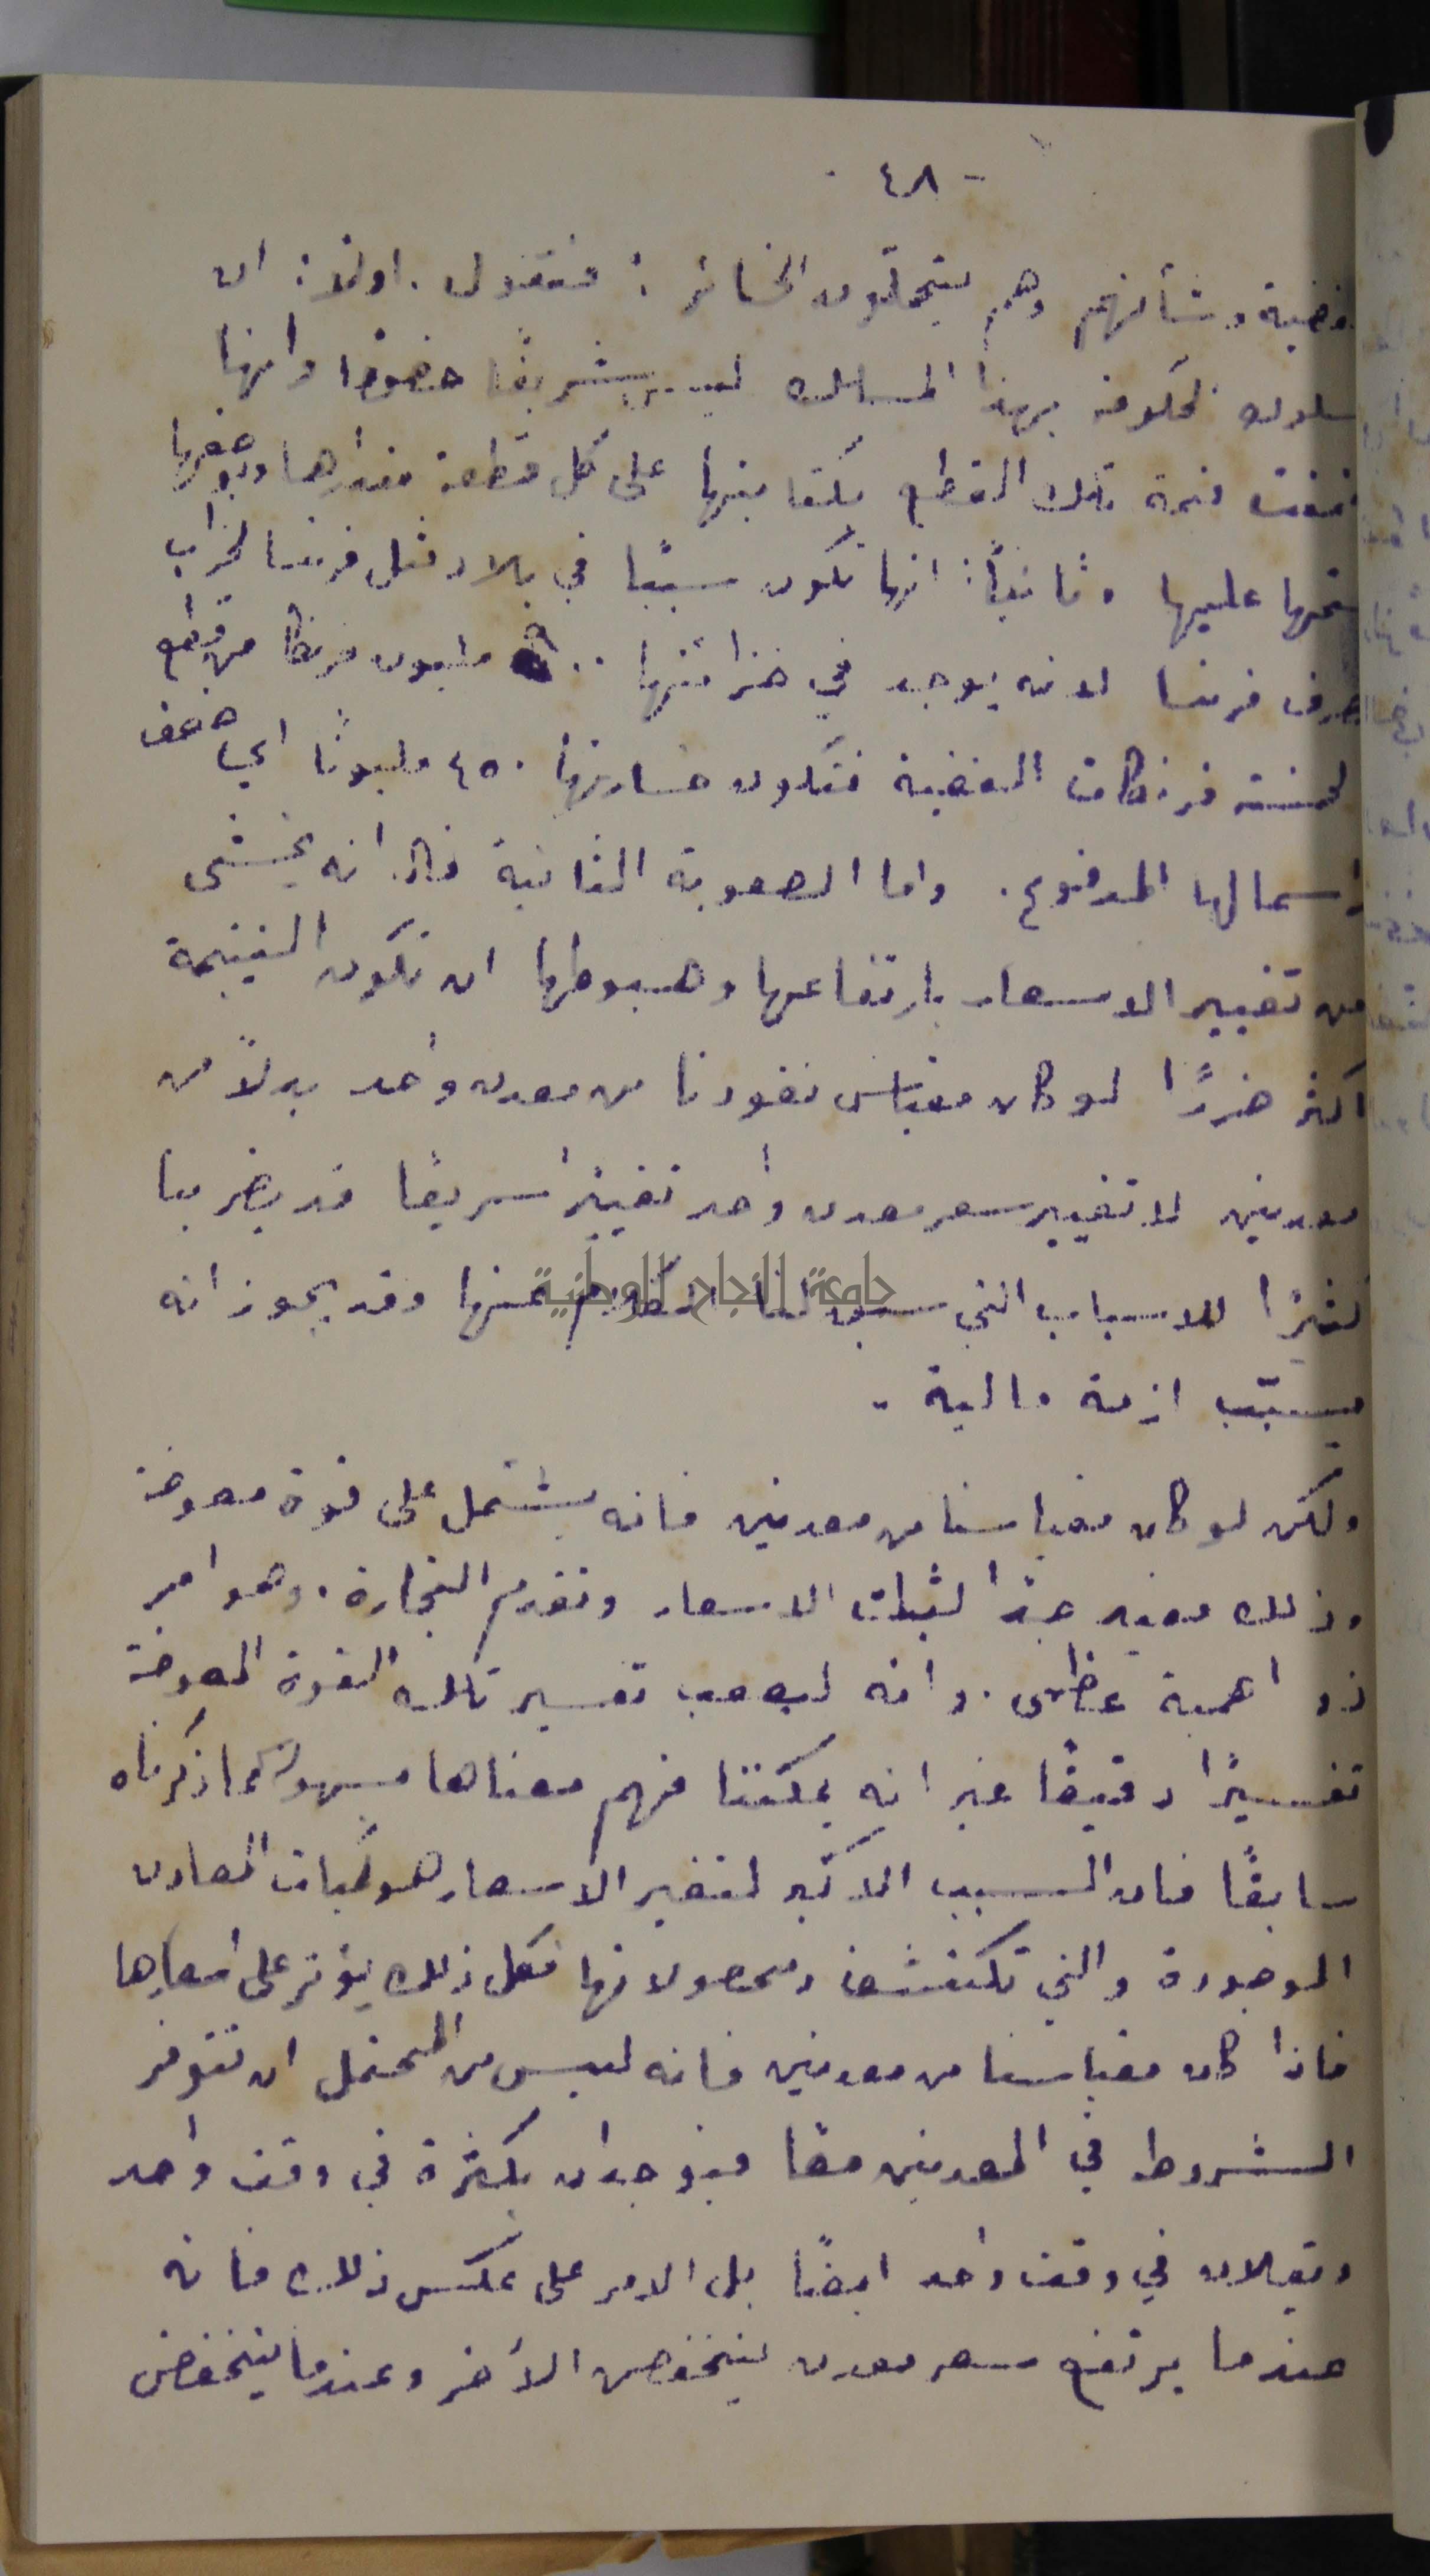 - ٤٨ -
فضية وشأنهم وهم يتحملون الخسائر : فنقول . اولاً : ان
سلوك الحكومة بهذا المسلك ليس شريفًا خصوصًا وانها
ضمنت قيمة تلك القطع بكتابتها على كل قطعة مقدارها وبوضعها
ختمها عليها وثانياً : انها تكون سببًا في بلاد مثل فرنسا لخراب
مصرف فرنسا لانه يوجد في خزائنها ٩٠٠ مليون فرنكًا من قطع
الخمسة فرنكات الفضية فتكون خسارتها ٤٥٠ مليونًا اي ضعف
راسمالها المدفوع . واما الصعوبة الثانية فلا انه يخشى
من تغيير الاسعار بارتفاعها وهبوطها ان تكون النتيجة
اكثر ضررًا لو كان مقياس نقودنا من معدن واحد بدلاً من
معدنين لا تغيير سعر معدن واحد تغييرًا سريعًا قد يضر بنا
كثيرًا للاسباب التي سبق لنا الكلام عنها وقد يجوز انه
يسبّب ازمة مالية .
ولكن لو كان مقياسنا من معدنين فانه يشتمل على قوة معوضة
وذلك مفيد جدًا لثبات الاسعار وتقدم التجارة . وهو امر
ذو اهمية عظمى . وانه ليصعب تفسير تلك القوة المعوضة
تفسيرًا دقيقًا غير انه يمكننا فهم معناها بسهولة كما ذكرناه
سابقًا فان السبب الاكبر لتغير الاسعار هو كميات المعادن
الموجودة والتي تكتشف ومحصولاتها فكل ذلك يؤثر على اسعارها
فاذا كان مقياسنا من معدنين فانه ليس من المحتمل ان تتوفر
الشروط في المعدنين معًا فيوجدان بكثرة في وقت واحد
ويقلان في وقت واحد ايضًا بل الامر على عكس ذلك فانه
عندما يرتفع سعر معدن ينخفض الآخر وعندما ينخفض
جامعة النجاح الوطنية